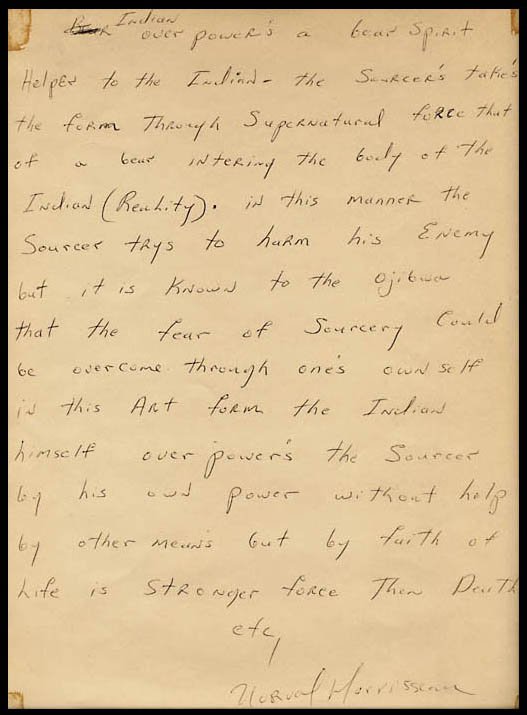 Indian over power's a bear Spirit
Helper to the Indian - the Sourcer's take's
the form Through Supernatural force that
of a bear intering the body of the
Indian (Reality). in this manner the
Sourcer trys to harm his Enemy
but it is Known to the Ojibwa
that the fear of Sourcery Could
be overcome through one's own self
in this Art form the Indian
himself over power's the Sourcer
by his own power without help
by other means but by faith of
Life is Stronger force Then Death
etc,
Norval Morrisseau